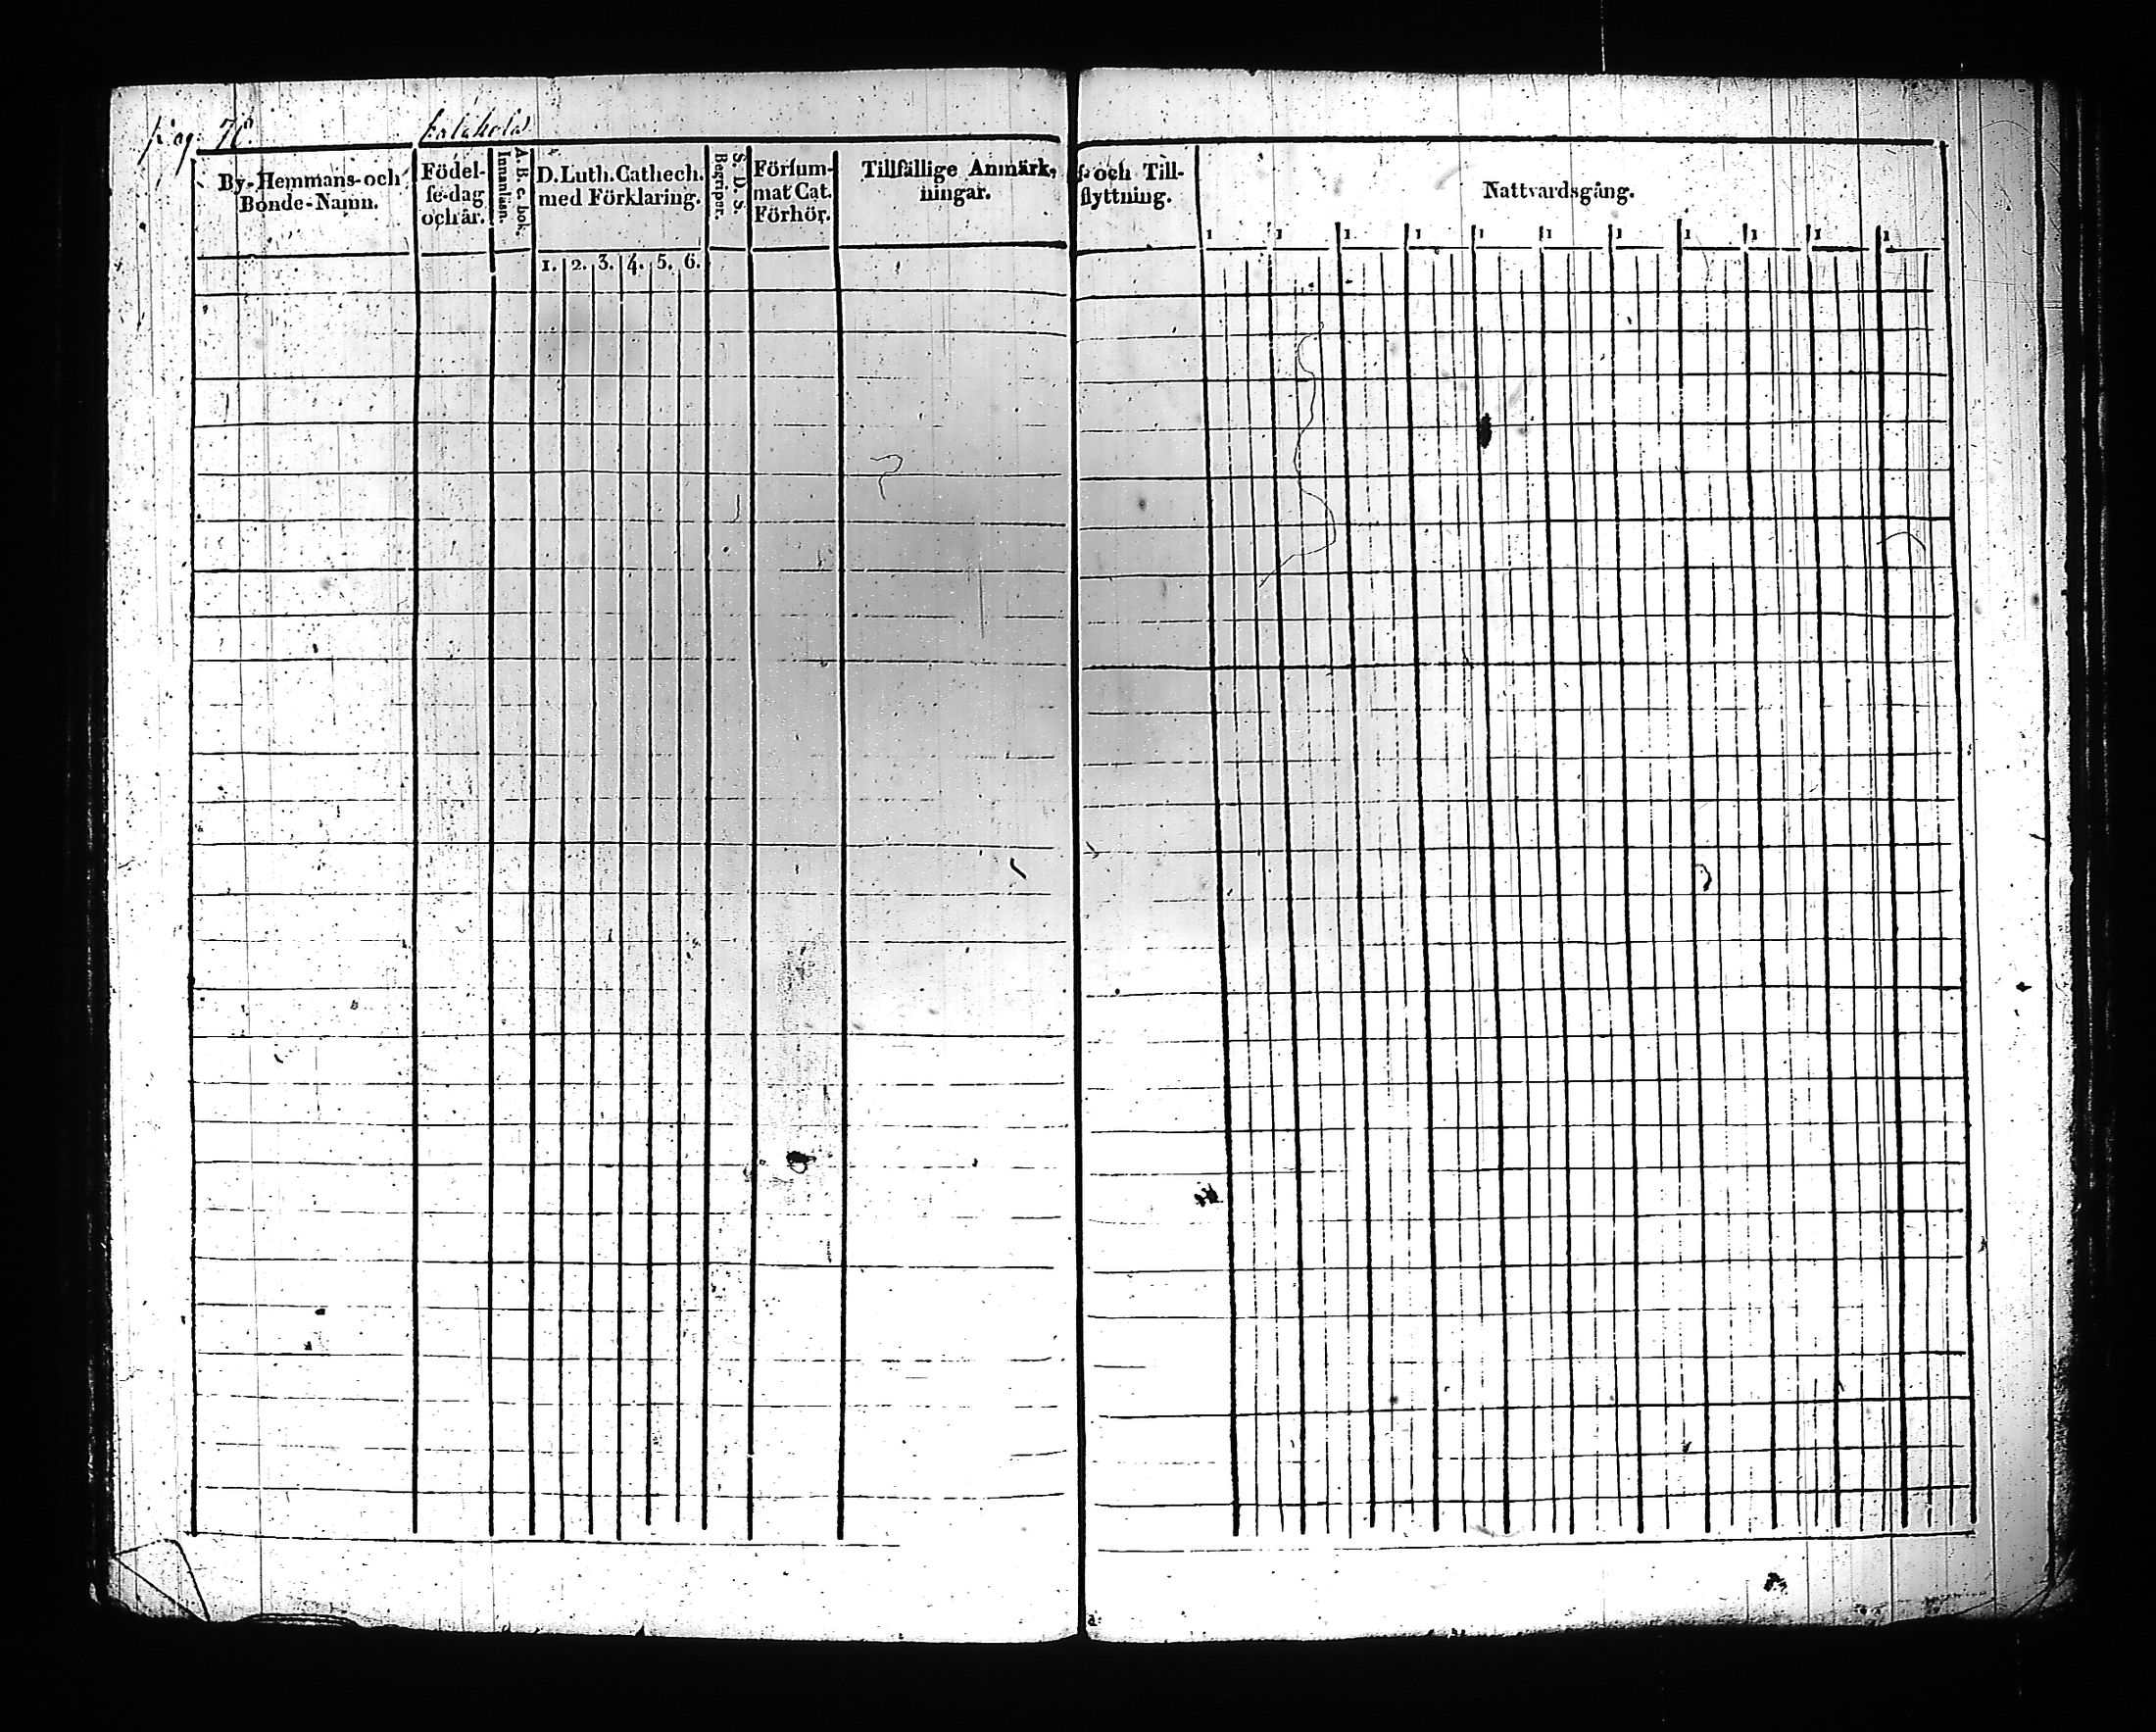 pag. 78.
By-Hemmans-och
Bonde-Namn.
Födel-
se-dag
och år.
A. B. c. bok.
Innanläsn.
D. Luth. Cathech.
med Förklaring.
1. 2. 3. 4. 5. 6.
S. D. S.
Begriper.
Försum-
mat Cat.
Förhör.
Tillfällige Anmärk-
ningar.
f- och Till-
flyttning.
Nattvardsgång.
1 1 1 1 1 1 1 1 1 1 1